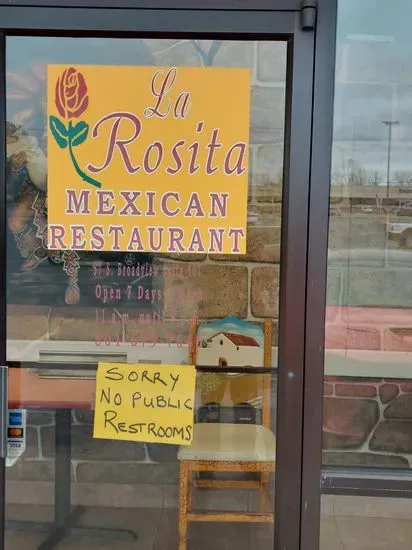 La
Rosita
MEXICAN
RESTAURANT
S. Broadview
Open 7 Days
11 a.m. until
SORRY
NO PUBLIC
RESTROOMS
VISA